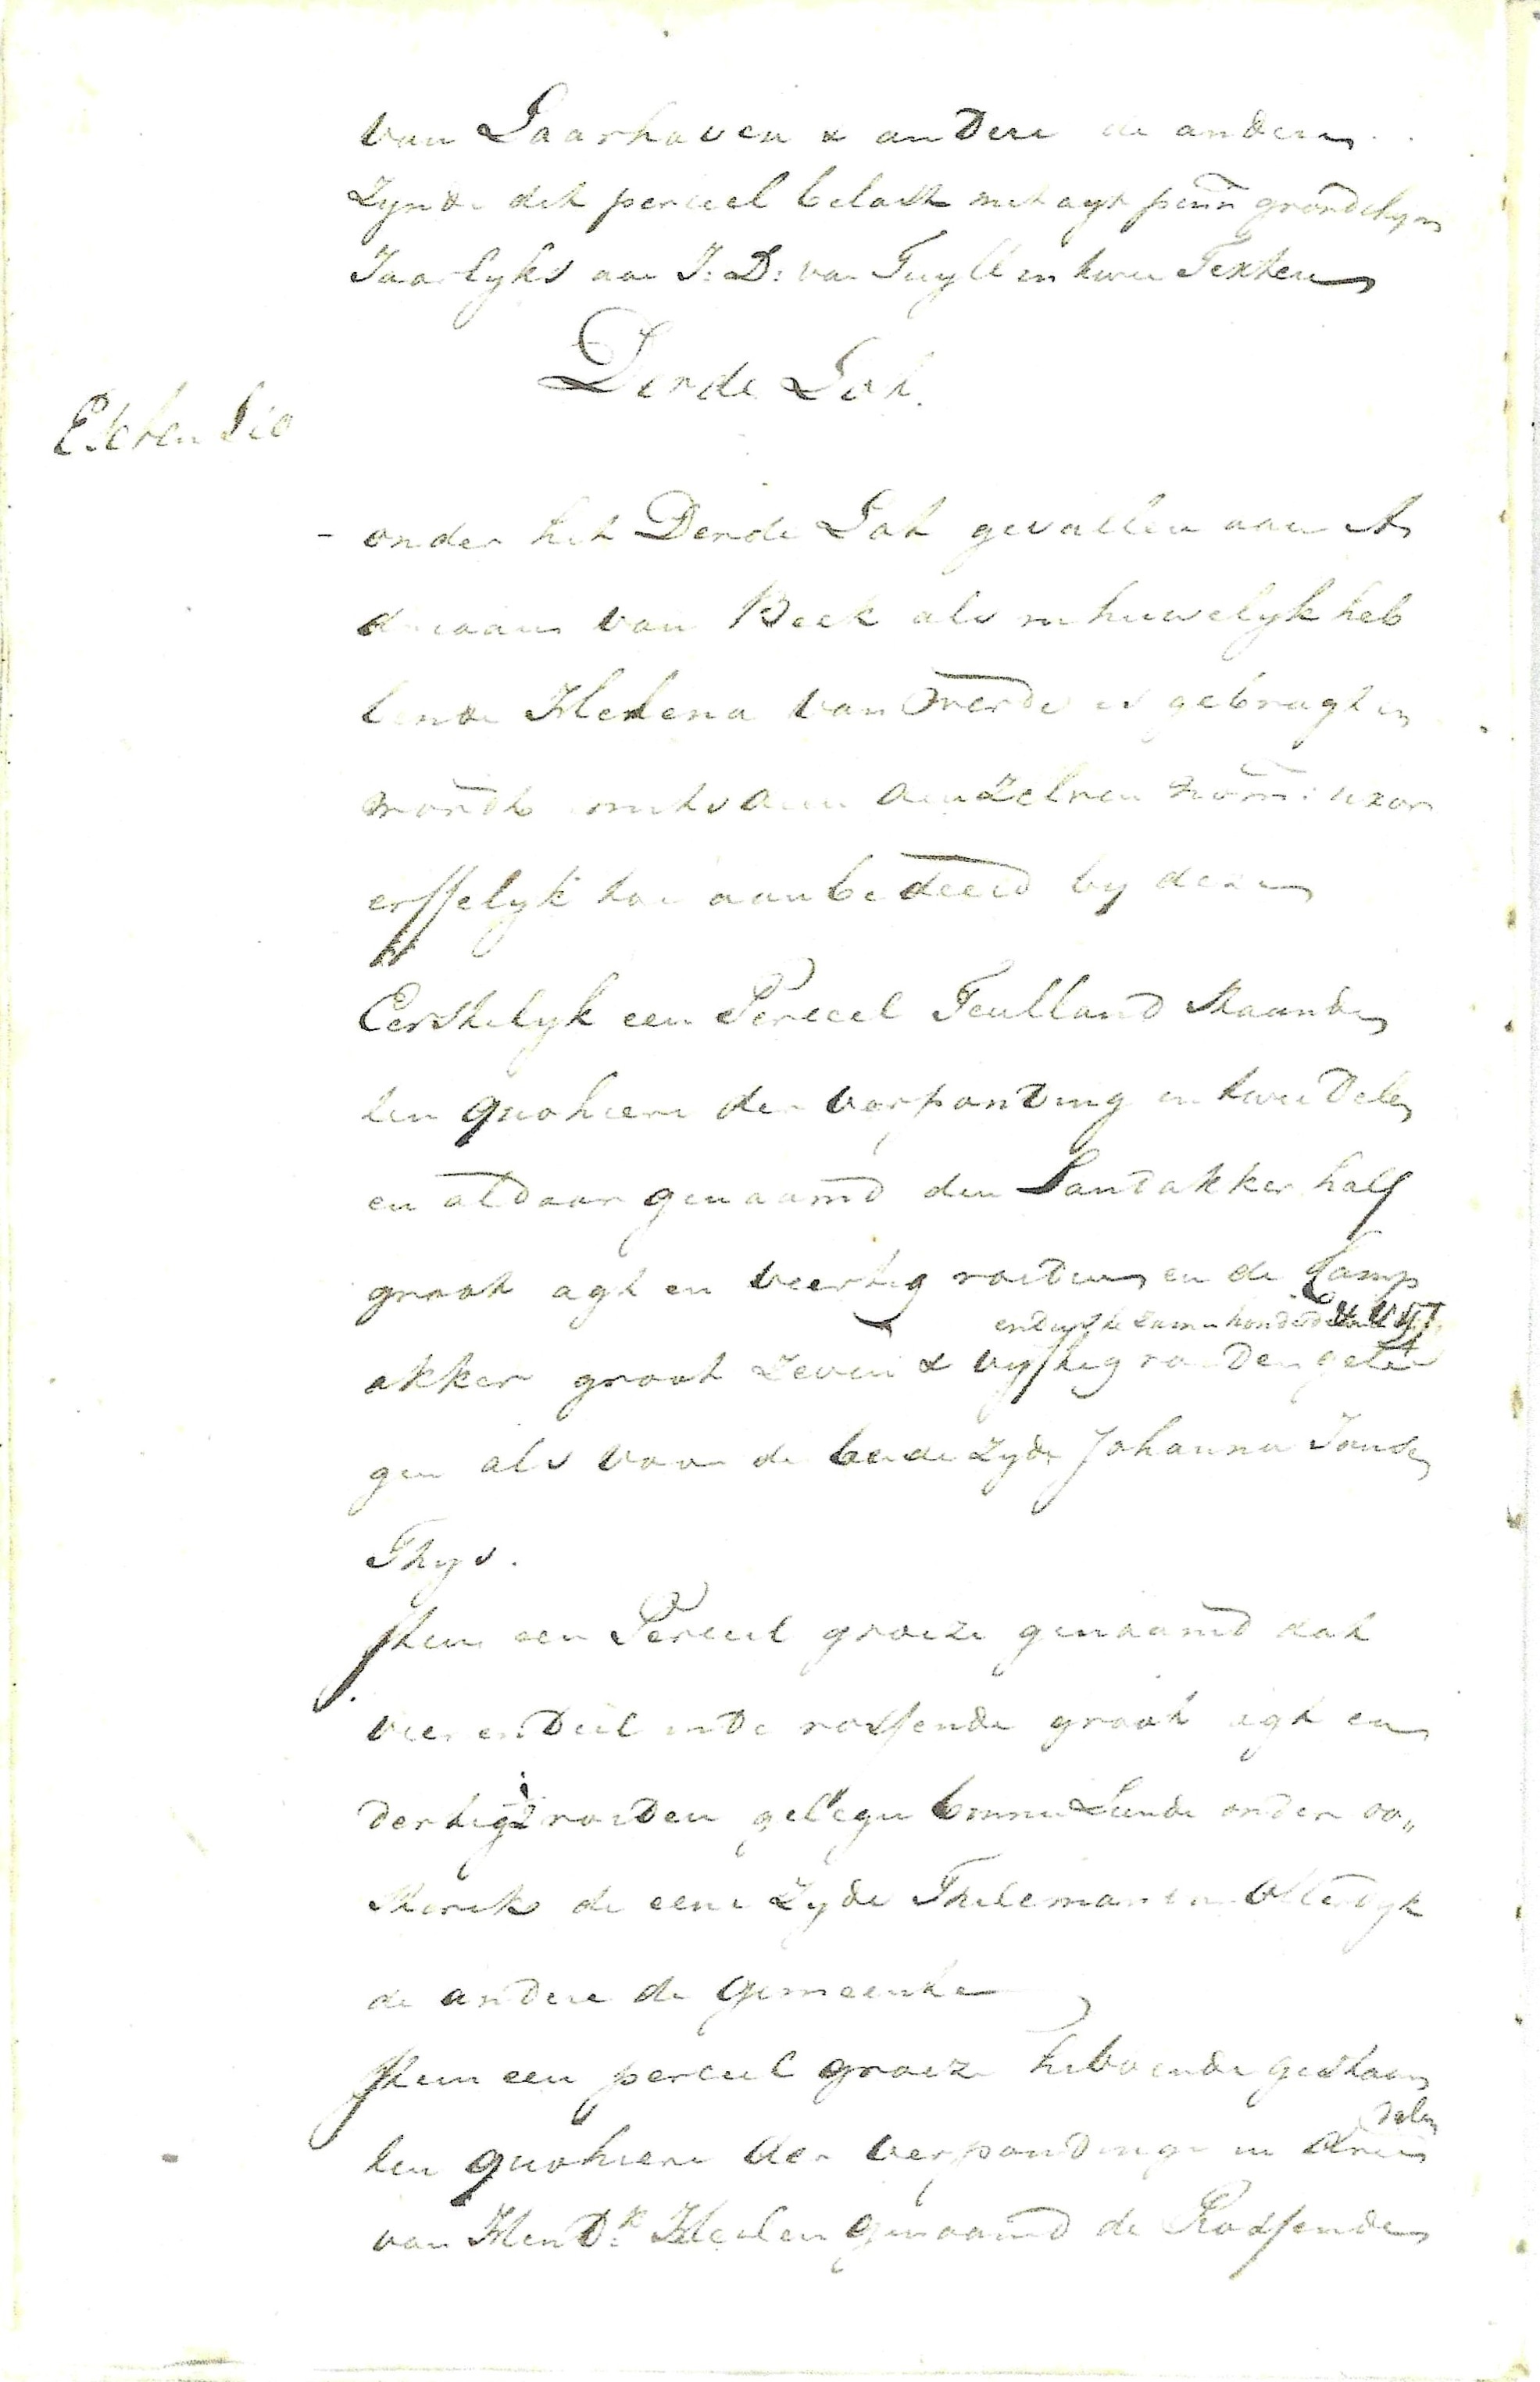 van Laarhoven & andere de andere
Zynde dit perceel belast met agt penn grondchyns
Jaarlyks aan J: D: van Tuyll in twee Texten
Derde Lot.
- onder het Derde Lot gevallen aan A
driaan van Beek als in huwelyk heb
bende Helena van is gebragt en
wordt mits aan denzelven nom: uxor
erffelyk toe aanbedeeld by dezen
Eerstelyk een Perceel Teulland staande
ten quohiere der verponding in twee Delen
en aldaar genaamd den Santakker half
groot agt en veertig roeden en de Camp
en dus te zamen honderd
akker groot zeven & vyftig roeden gele
gen als voor de beide zyde Johanna Janse
Thys.
Item een Perceel groeze genaamd dat
vierendeel in de rotsende groot agt en
dertig roeden gelegen binnen Lunde onder oo„
sterwk de eene Zyde Thileman
de andere de Gemeente
Item een perceel groeze gestaan
delen
ten quohiere der verpondinge in drie
van Hend.k genaamd de Rotsende